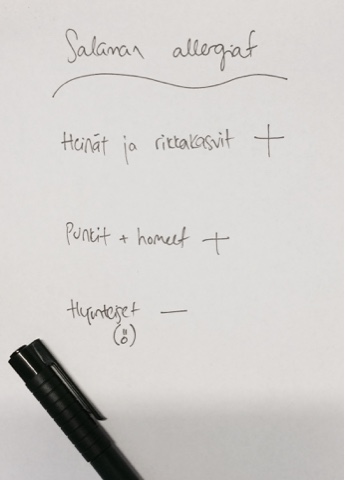 Salaman allergiat
Heinät ja rikkakasvit +
Punkit + homeet +
Hyönteiset —